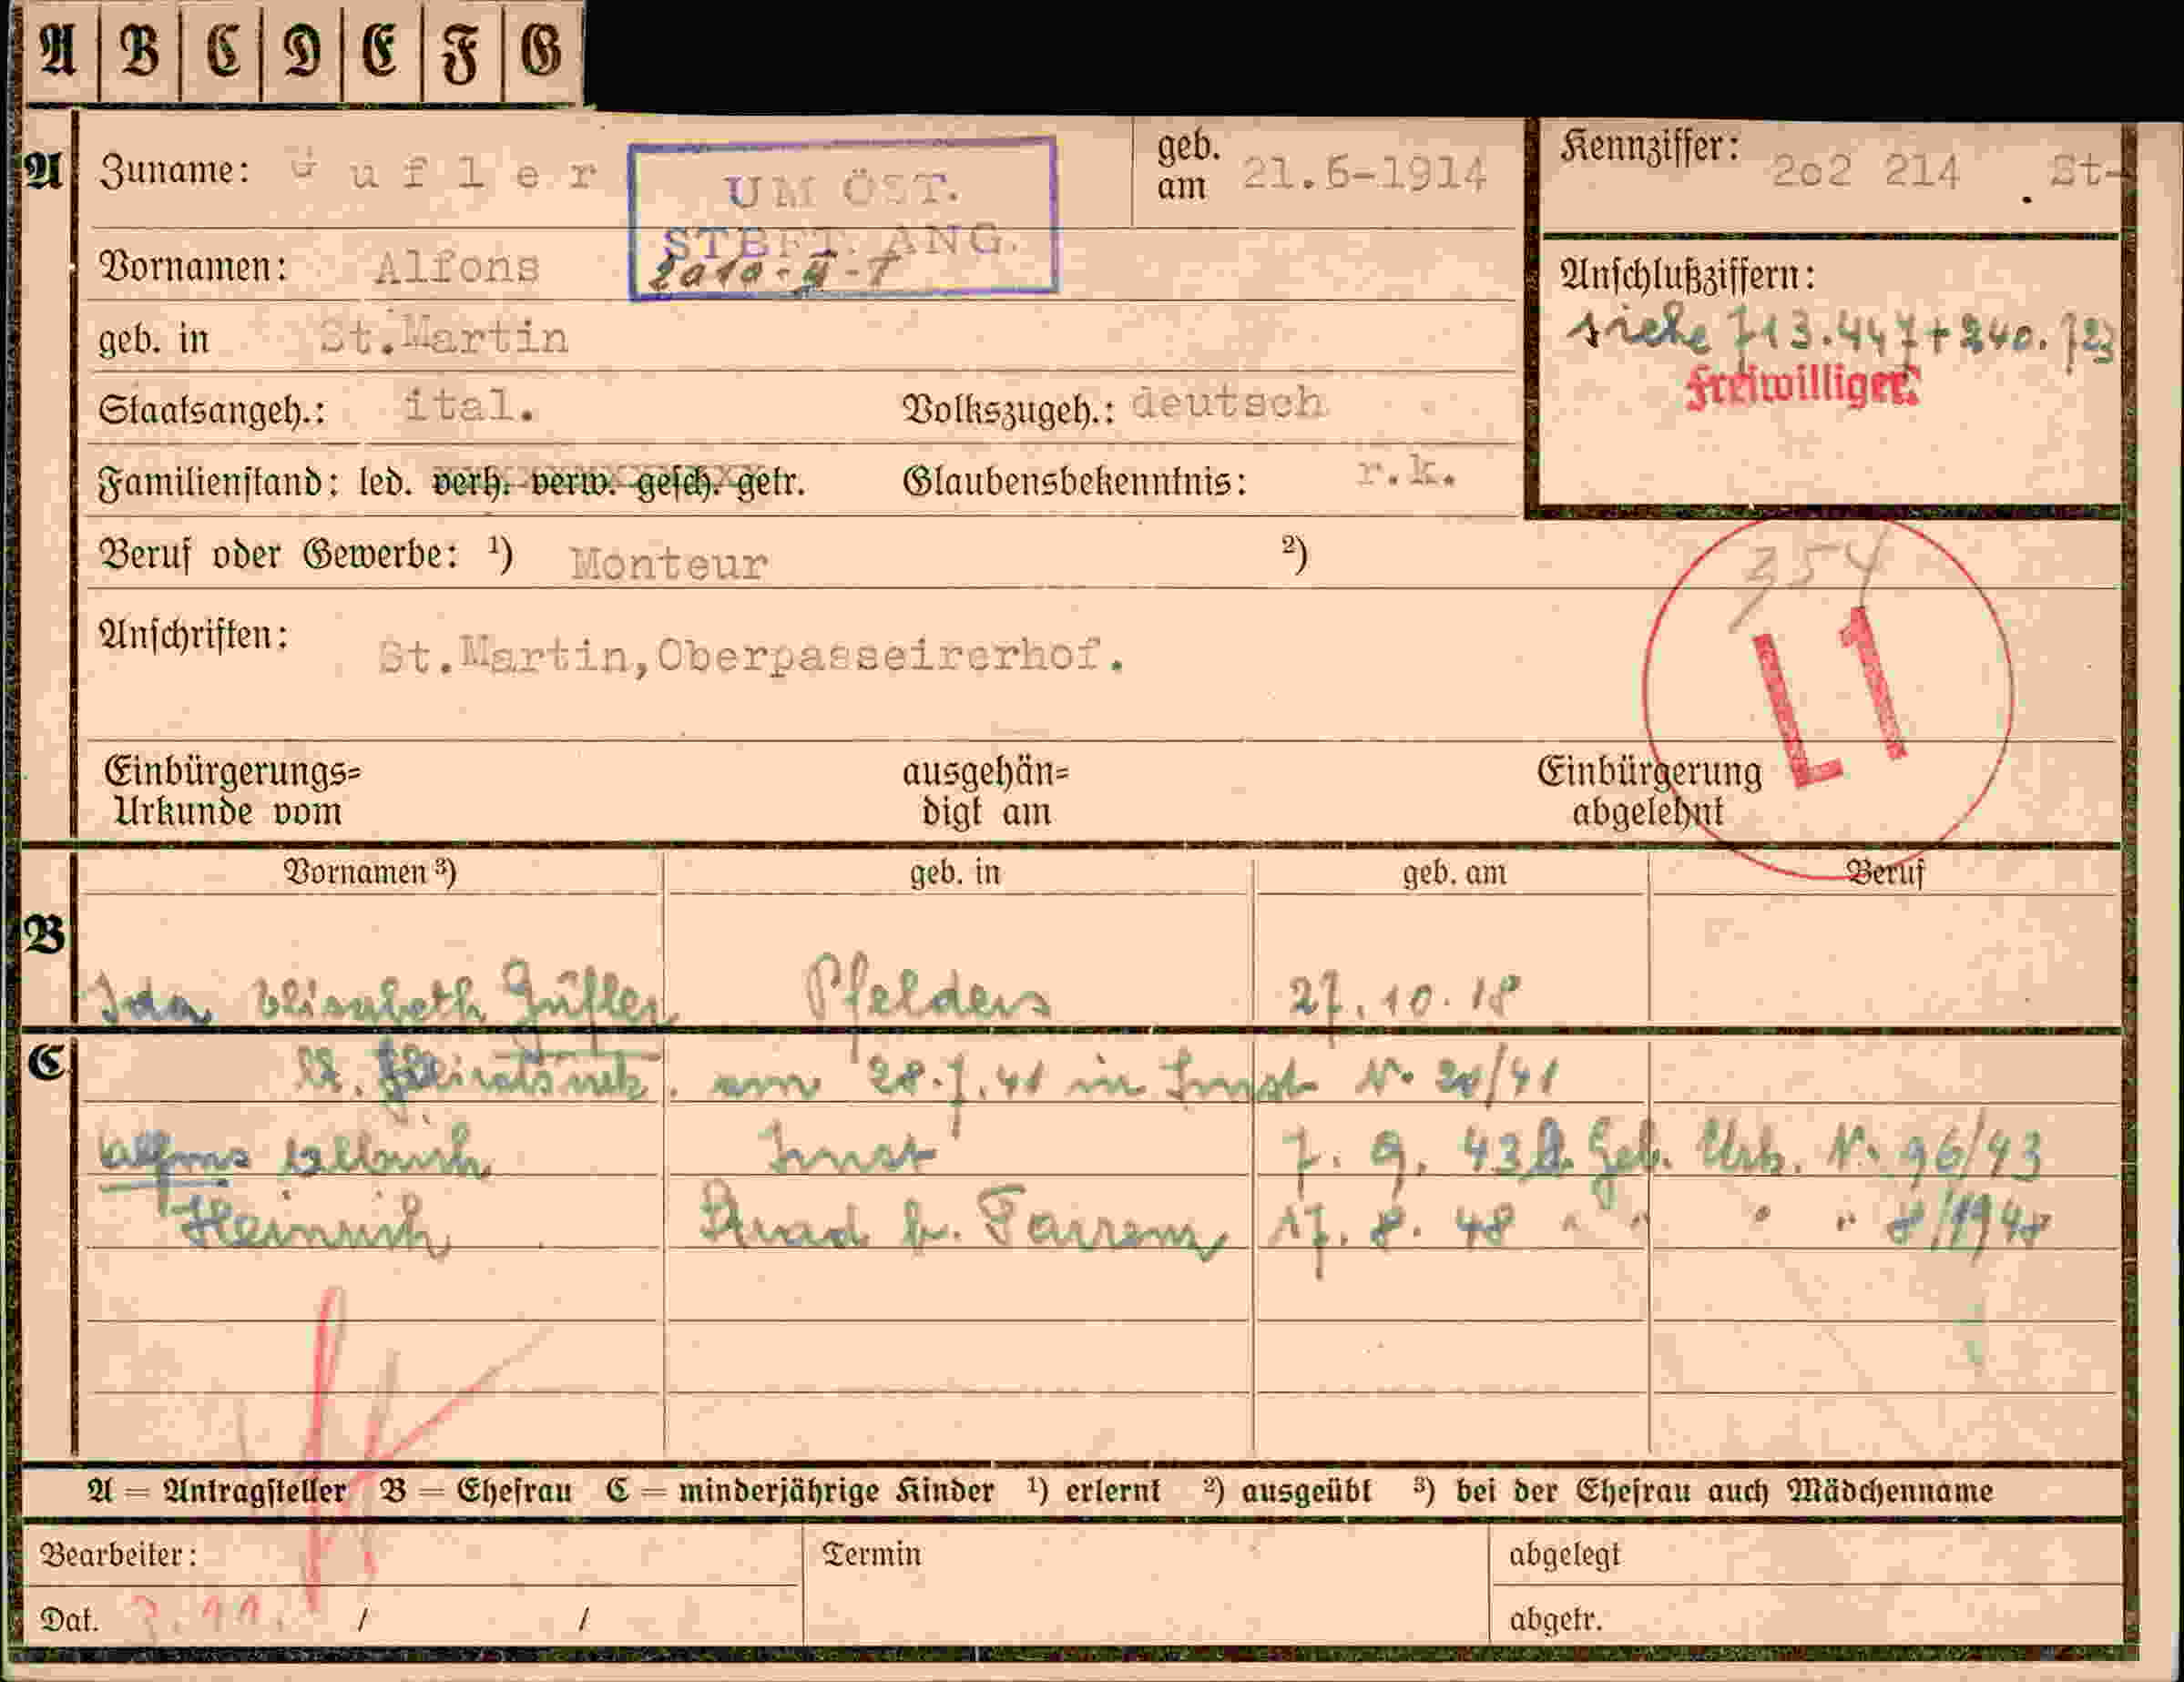 A B C D E F G
A Zuname: Gufler geb. am 21.6-1914 Kennziffer: 2o2 214 . St-
UM ÖST.
STBFT. ANG.
Vornamen: Alfons
Anschlußziffern:
siehe 713.447 + 240.723
Freiwilliger.
geb. in St.Martin
Staatsangeh.: ital. Volkszugeh.: deutsch
Familienstand: led. verh. verw. gesch. getr. Glaubensbekenntnis: r.k.
Beruf oder Gewerbe: ¹) Monteur ²)
354
L1
Anschriften: St.Martin,Oberpasseirerhof.
Einbürgerungs= ausgehän= Einbürgerung
Urkunde vom digt am abgelehnt
Vornamen ³) geb. in geb. am Beruf
B
Ida Elisabeth Gufler Pfelders 27.10.18
C
lt. Heiratsurk. am 28.7.41 in Imst Nr. 20/41
Alfons Albuin Imst 7. 9. 43 lt. Geb. Urk. Nr. 96/43
Heinrich b. Tarrenz 17. 8. 48 " " " " 8/1948
A = Antragsteller B = Ehefrau C = minderjährige Kinder ¹) erlernt ²) ausgeübt ³) bei der Ehefrau auch Mädchenname
Bearbeiter: Termin abgelegt
Dat. 7.11. / / abgetr.